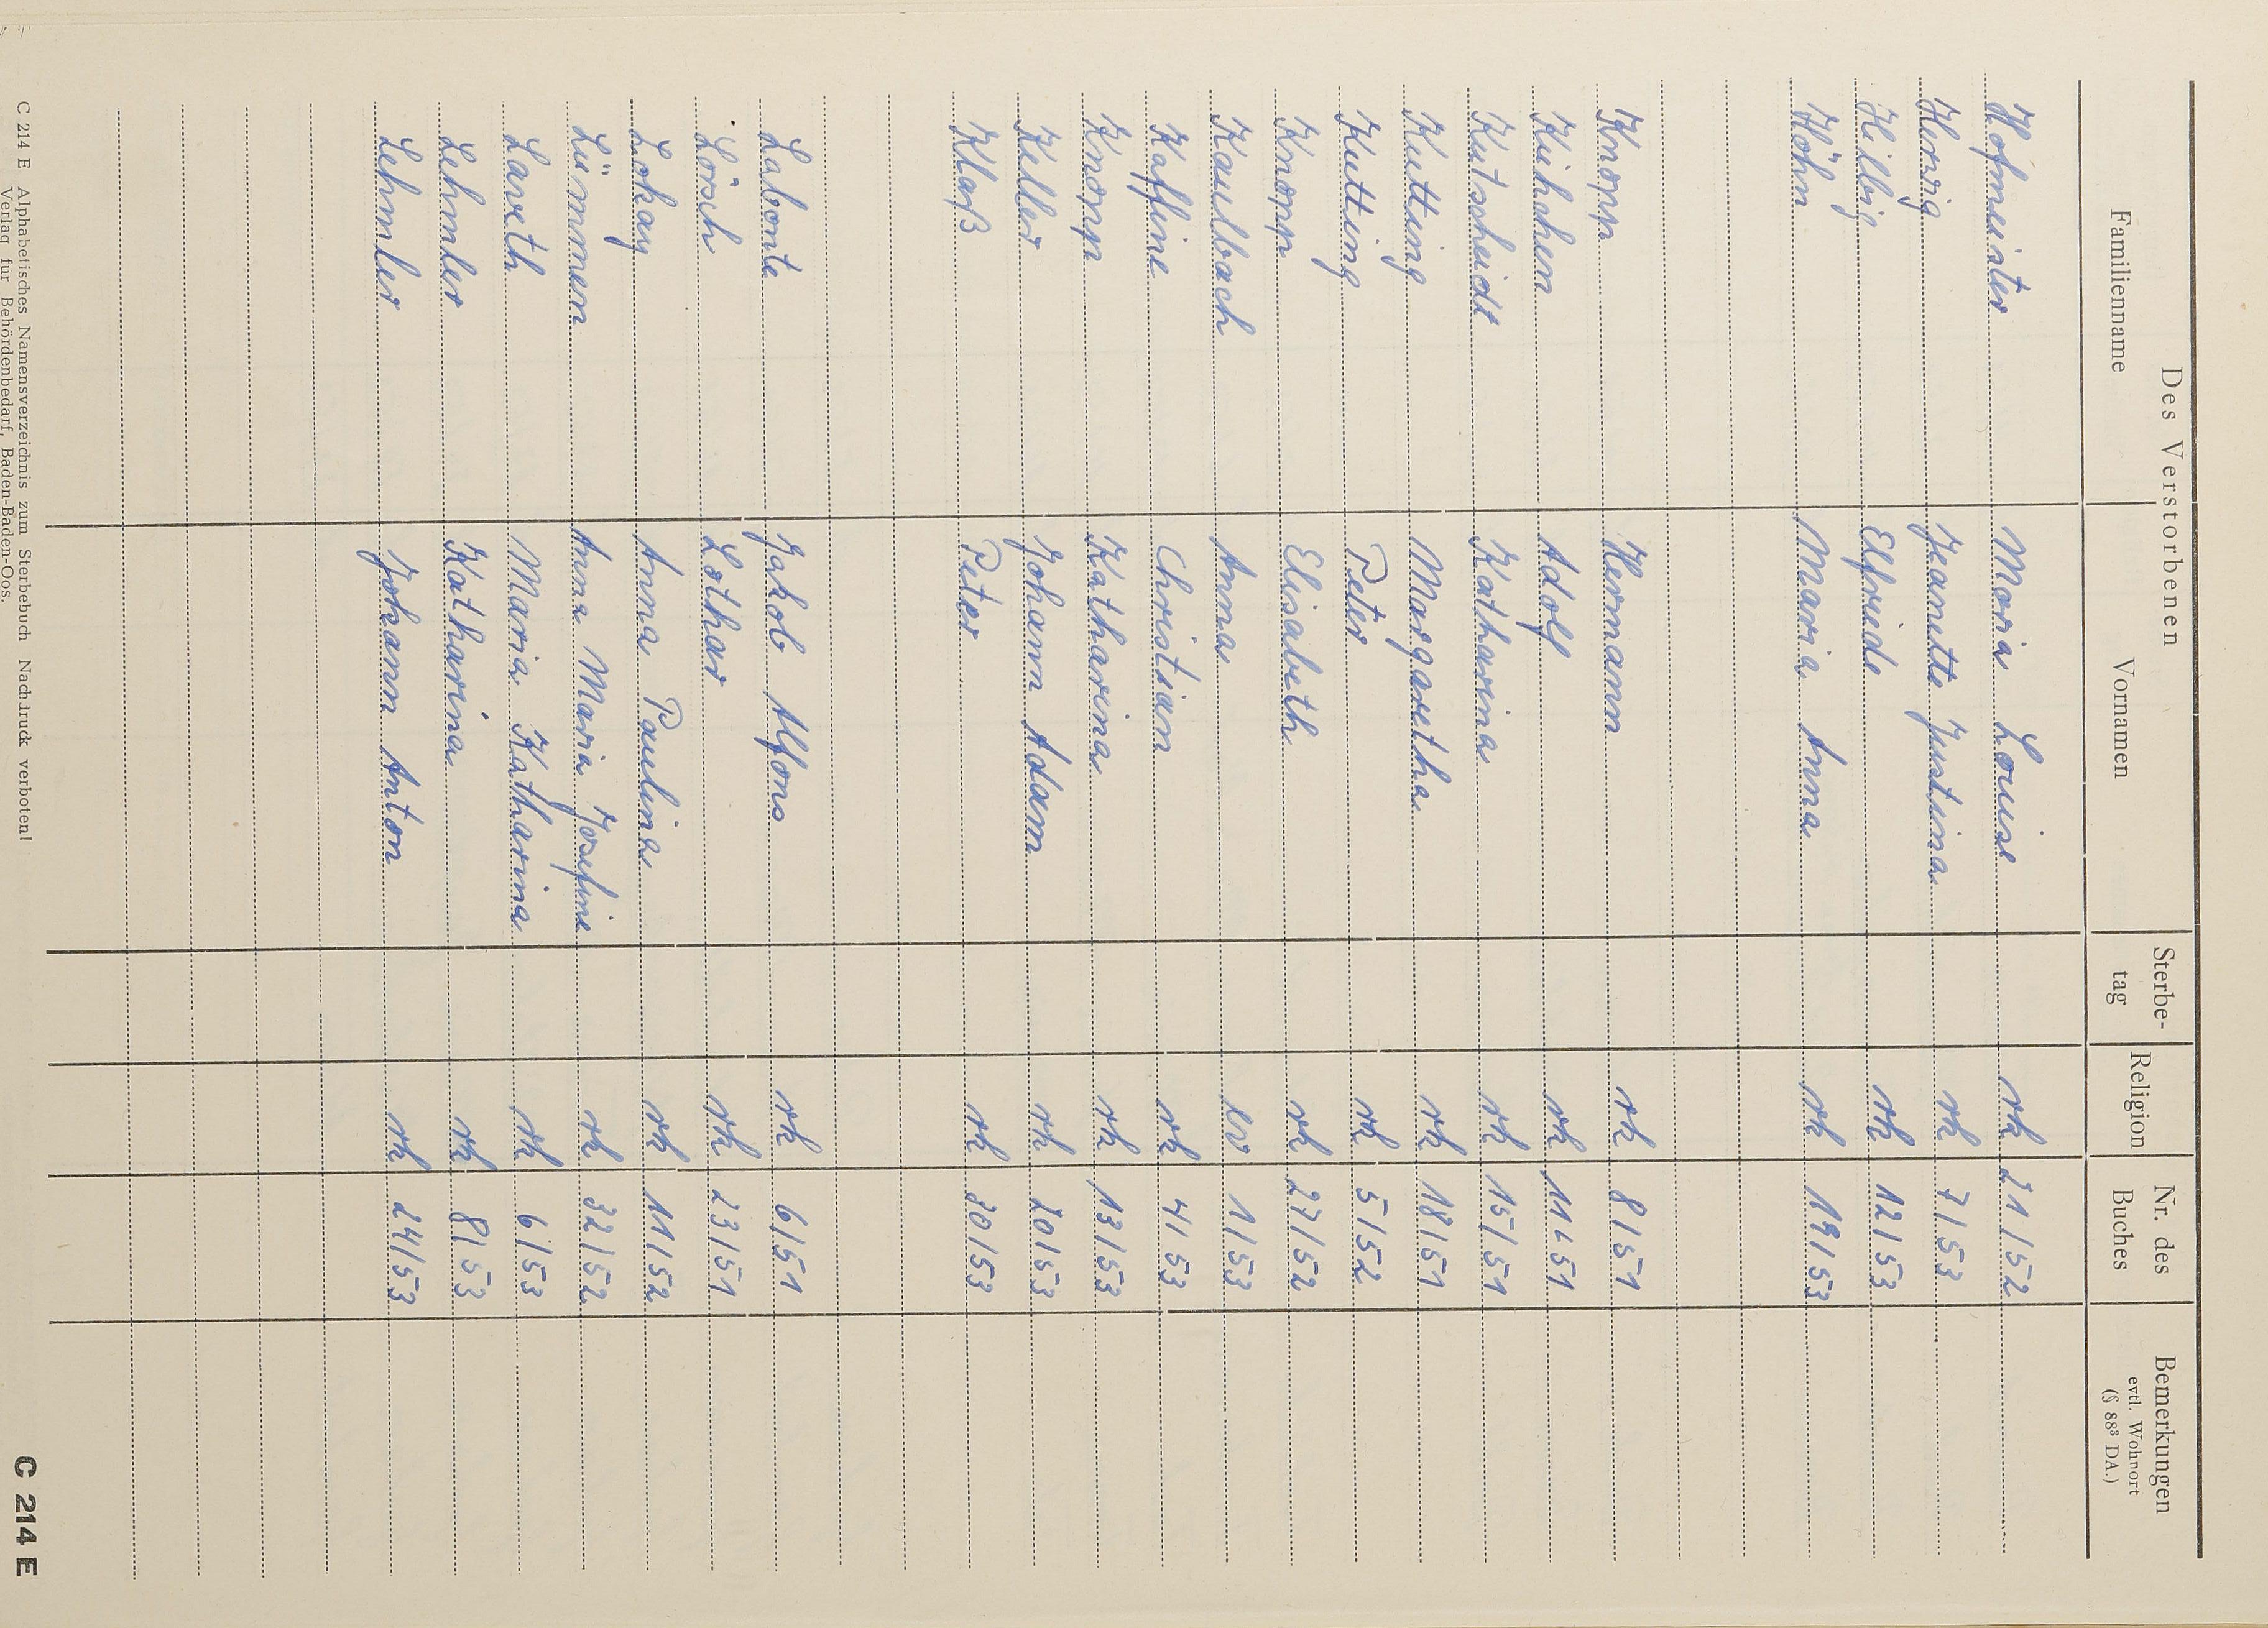 Des Verstorbenen
Familienname Vornamen Sterbe-tag Religion Nr. des Buches Bemerkungen evtl. Wohnort (§ 88³ DA.)
Hofmeister Maria Louise rk 21/52
Herzig Jeanette Justina rk 7/53
Hilbig Elfriede rk 12/53
Höhn Maria Anna rk 19/53
Knopp Hermann rk 8/51
Kühchen Adolf rk 11/51
Kutscheidt Katharina rk 15/51
Kutting Margaretha rk 18/51
Kutting Peter rk 5/52
Knopp Elisabeth rk 27/52
Kaulbach Anna ev 1/53
Kaffine Christian rk 4/53
Knopp Katharina rk 13/53
Keller Johann Adam rk 20/53
Klaß Peter rk 30/53
Labonte Jakob Alfons rk 6/51
Lörsch Lothar rk 23/51
Lokay Anna Paulina rk 11/52
Lümmen Anna Maria Josefine rk 32/52
Lareth Maria Katharina rk 6/53
Lehmler Katharina rk 8/53
Lehmler Johann Anton rk 24/53
C 214 E Alphabetisches Namensverzeichnis zum Sterbebuch Nachdruck verboten!
Verlag für Behördenbedarf, Baden-Baden-Oos.
C 214 E